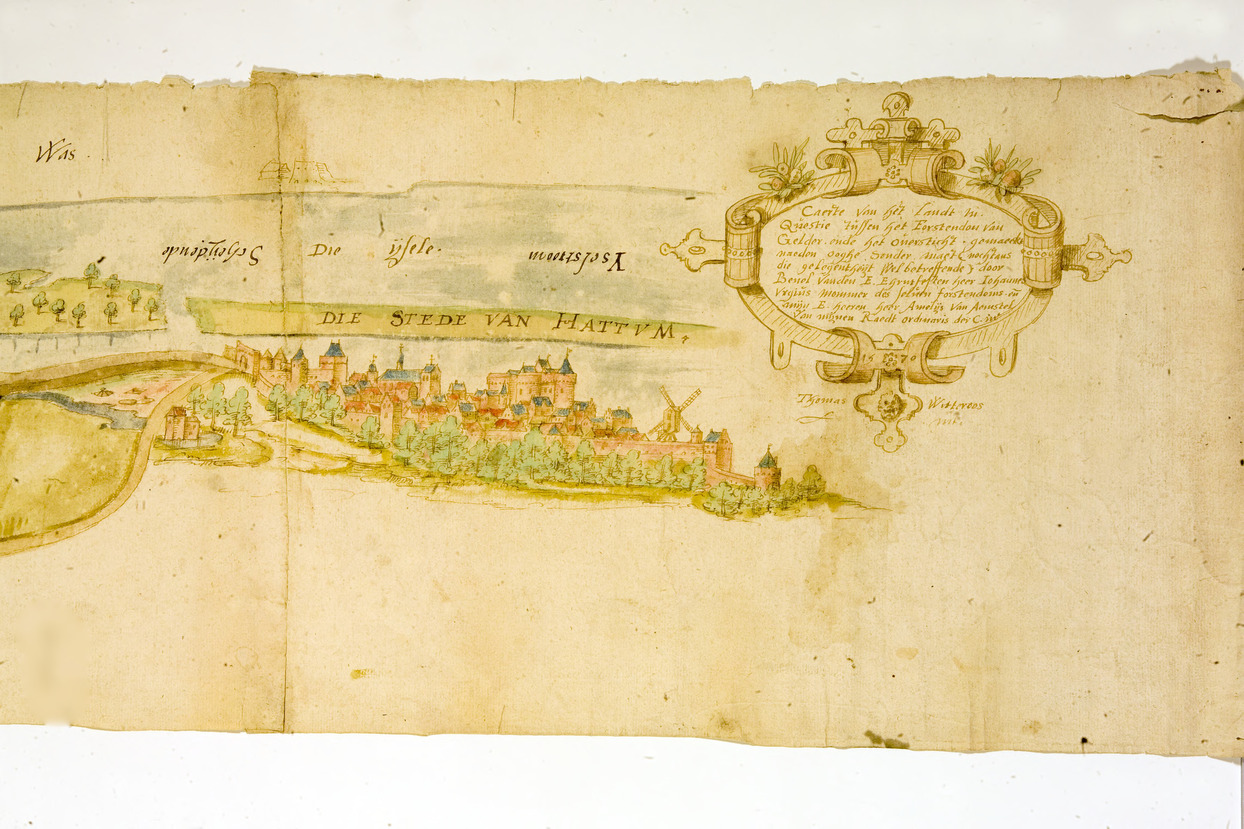 Was.
Die ijsele.
Yselstroom
DIE STEDE VAN HATTVM.
Caerte van het Landt in
Questie tussen het Forstendon van
Gelder ende het Ouersticht. gemaeckt
naeden ooghe Sonder maet nochtans
die gelegentheijt Wel betreffende door
Beuel vanden E. Erentfesten heer Iohannes
des seluen forstendoms en
E. heeren heer Amelis van Amstel
van mijnen Raedt ordinaris der
1570
Thomas Witteroos